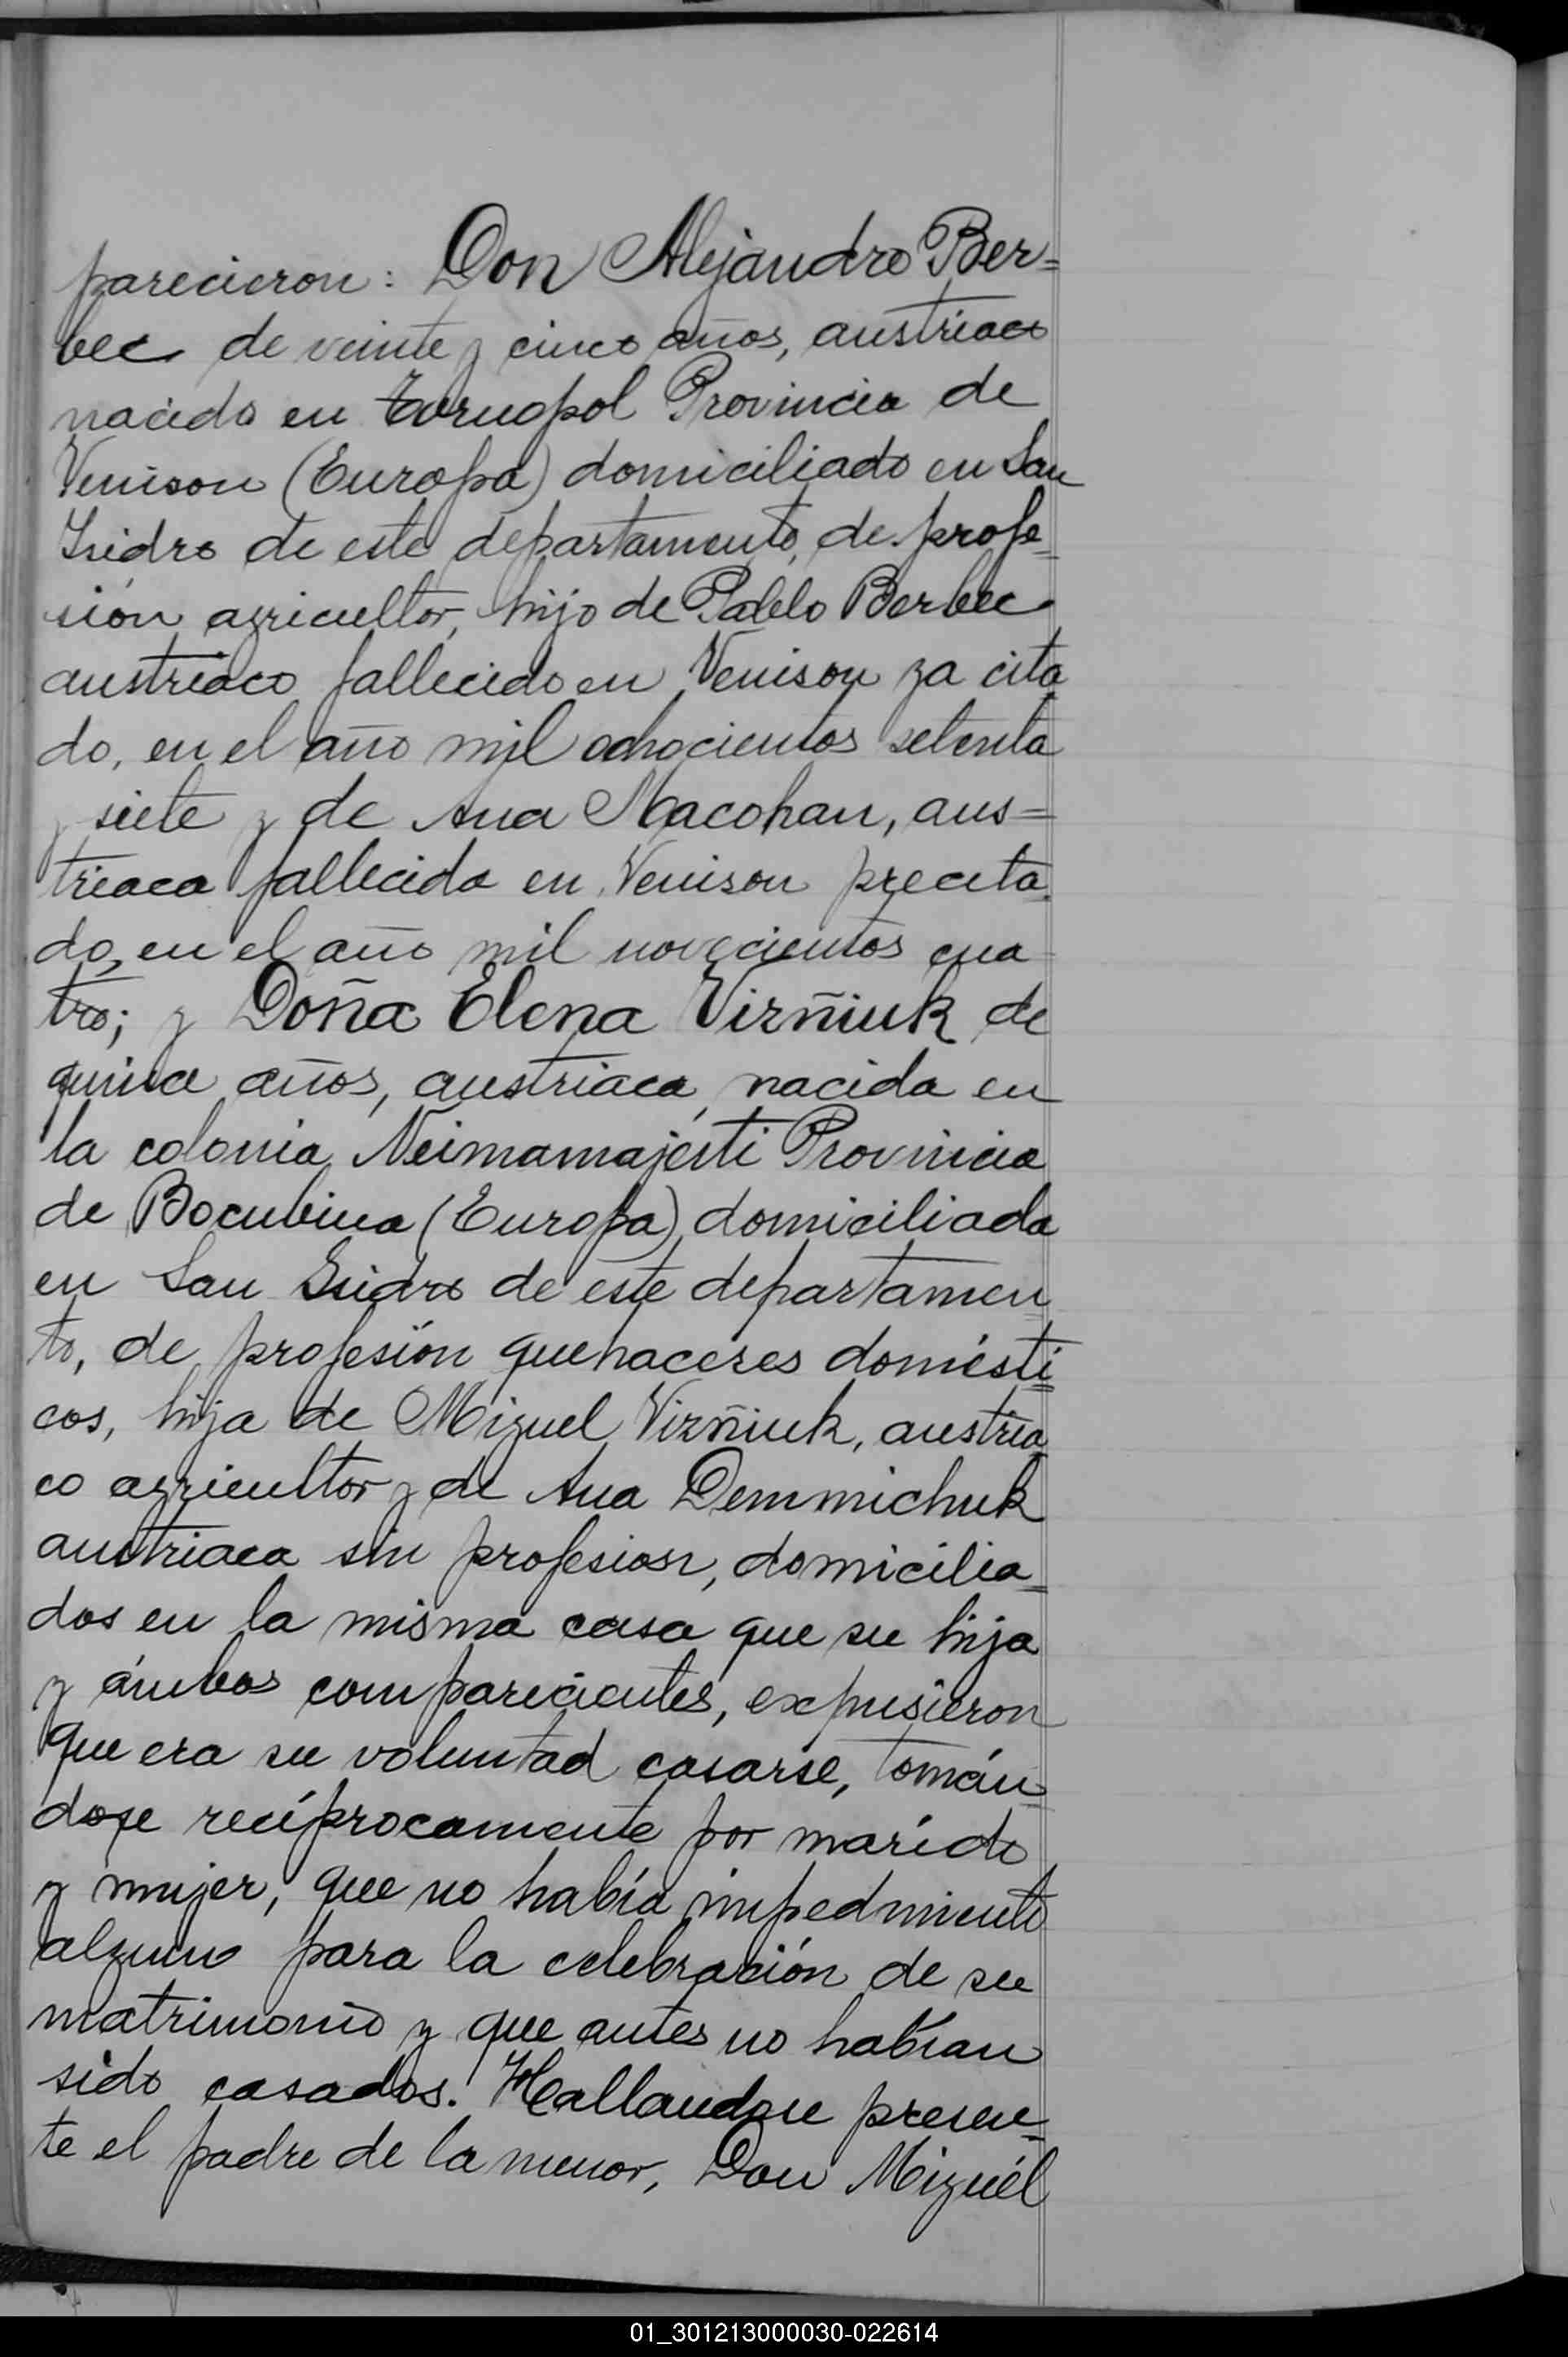 parecieron: Don Alejandro Ber=
bec de veinte y cinco años, austriaco
nacido en Tornopol Provincia de
Venison (Europa) domiciliado en San
Isidro de este departamento, de profe=
sión agricultor, hijo de Pablo Berbec
austriaco fallecido en Venison ya cita
do, en el año mil ochocientos setenta
y siete y de Ana Macohan, aus=
triaca fallecida en Venison precita
do, en el año mil novecientos cua
tro; y Doña Elena Virñiuk de
quince años, austriaca, nacida en
la colonia Neimamajesti Provincia
de Bocubina (Europa) domiciliada
en San Isidro de este departamen
to, de profesión quehaceres domésti=
cos, hija de Miguel Virñiuk, austria
co agricultor y de Ana Demmichuk
austriaca sin profesion, domicilia=
dos en la misma casa que su hija
y ámbos comparecientes, expusieron
que era su voluntad casarse, tomán
dose recíprocamente por marido
y mujer, que no había impedimento
alguno para la celebración de su
matrimonio y que antes no habían
sido casados. Hallandose presen=
te el padre de la menor, Don Miguél
01_301213000030-022614